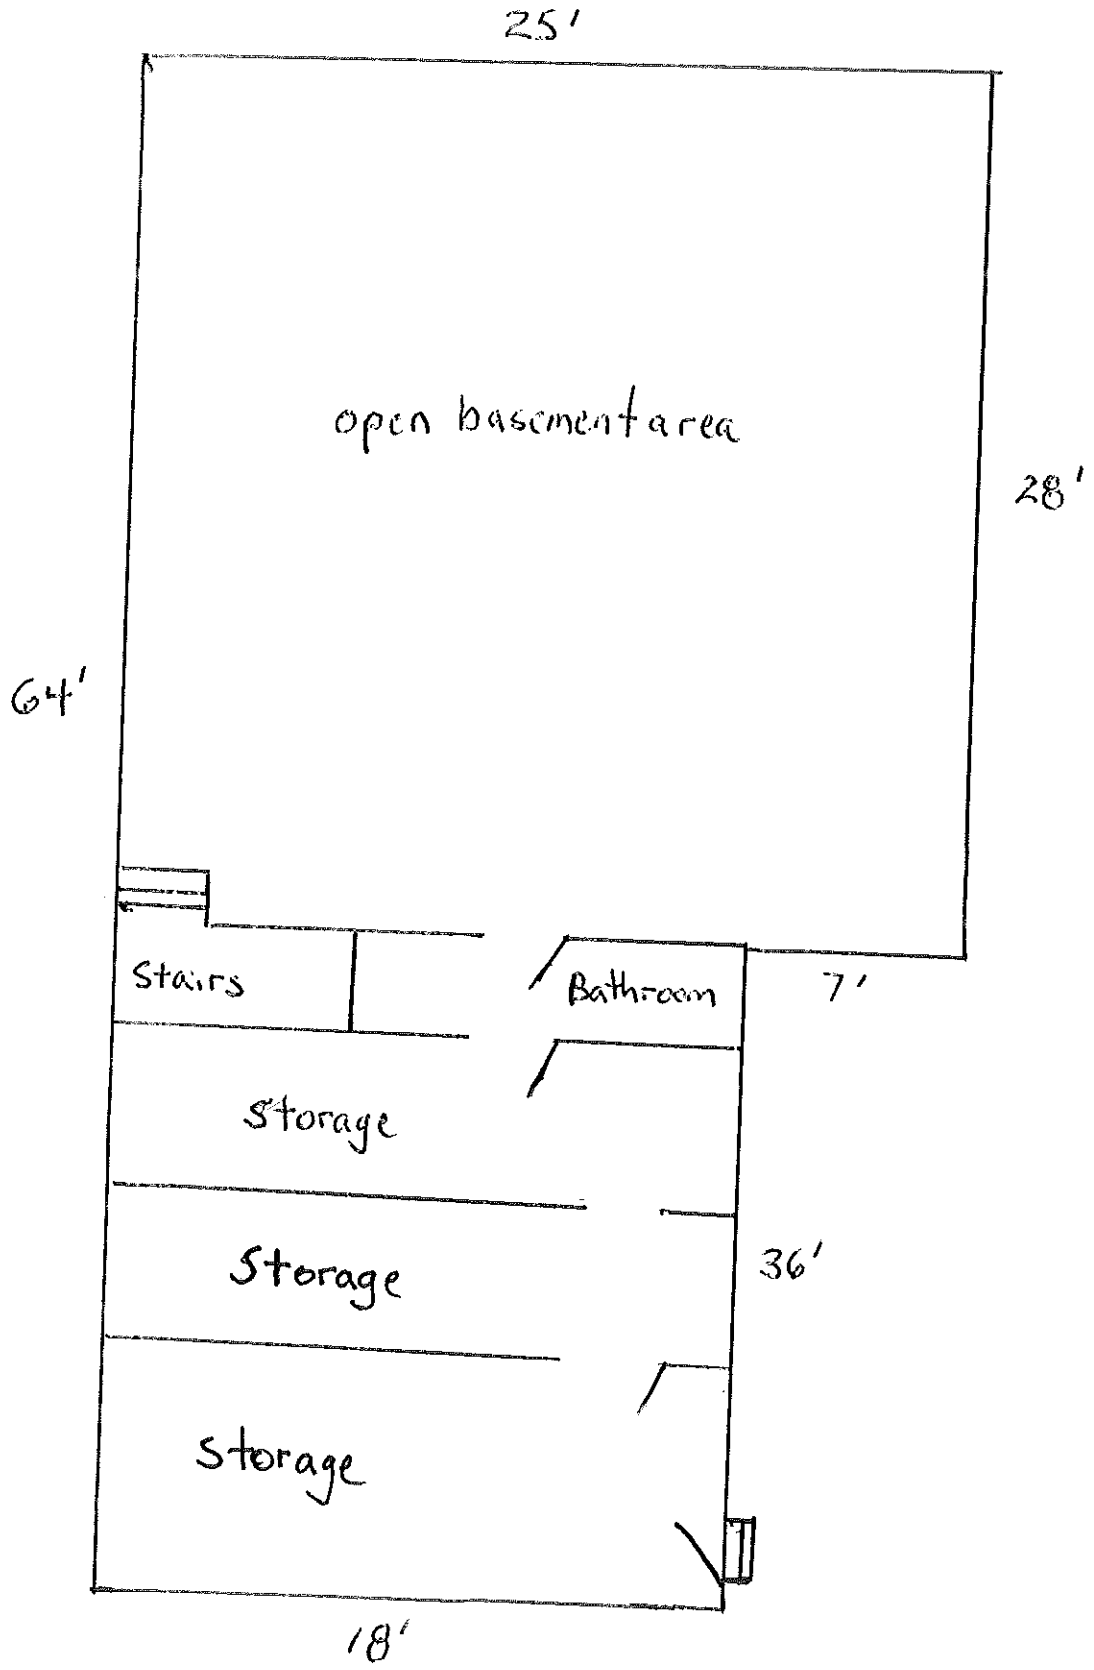 25'
open basement area
28'
64'
Stairs
Bathroom
7'
Storage
Storage
36'
Storage
18'